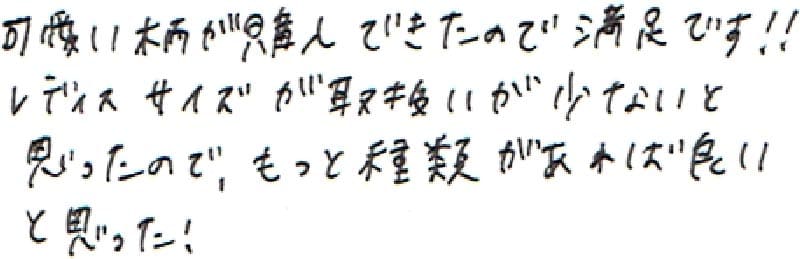 可愛い柄が購入できたので満足です!!
レディスサイズが取扱いが少ないと
思ったので、もっと種類があれば良い
と思った!